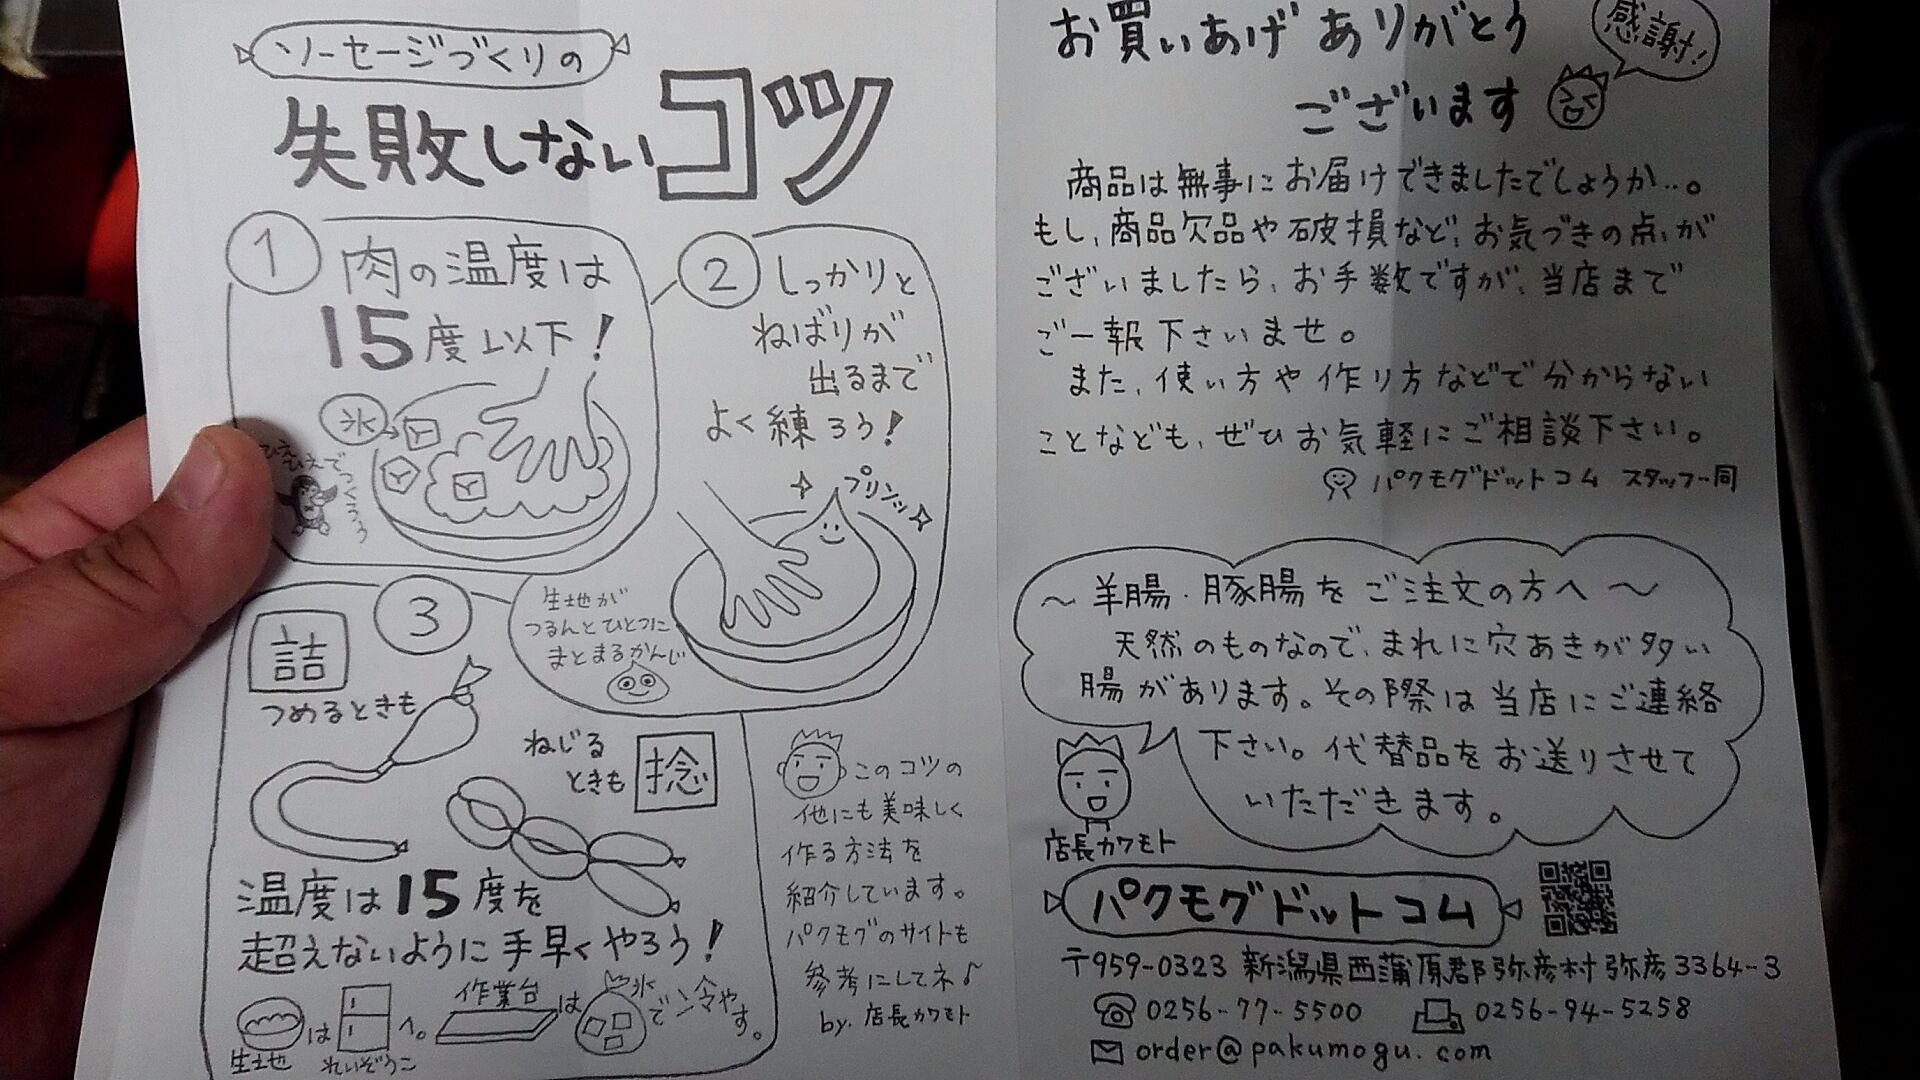 ソーセージづくりの
失敗しないコツ
1
肉の温度は
15度以下!
氷
ひえひえで
つくろう
2
しっかりと
ねばりが
出るまで
よく練ろう!
プリンッ
生地が
つるんとひとつに
まとまるかんじ
3
詰
つめるときも
ねじる
ときも
捻
温度は15度を
超えないように手早くやろう!
生地
は
れいぞうこ
へ。
作業台
は
氷
で冷やす。
このコツの
他にも美味しく
作る方法を
紹介しています。
パクモグのサイトも
参考にしてネ♪
by. 店長カワモト
お買いあげありがとう
ございます
感謝!
商品は無事にお届けできましたでしょうか…。
もし、商品欠品や破損など、お気づきの点が
ございましたら、お手数ですが、当店まで
ご一報下さいませ。
また、使い方や作り方などで分からない
ことなども、ぜひお気軽にご相談下さい。
パクモグドットコム スタッフ一同
～羊腸・豚腸をご注文の方へ～
天然のものなので、まれに穴あきが多い
腸があります。その際は当店にご連絡
下さい。代替品をお送りさせて
いただきます。
店長カワモト
パクモグドットコム
〒959-0323 新潟県西蒲原郡弥彦村弥彦3364-3
0256-77-5500 0256-94-5258
order@pakumogu.com